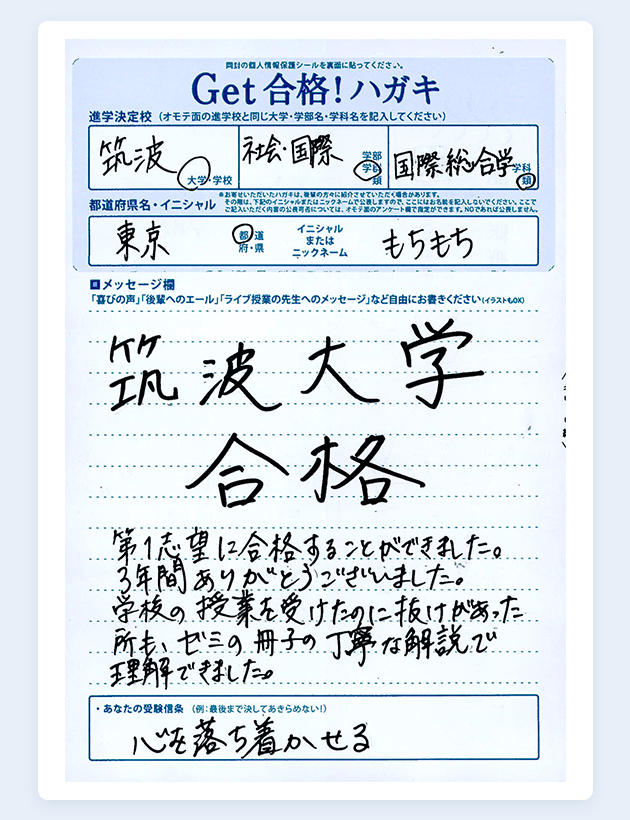 同封の個人情報保護シールを裏面に貼ってください。
Get合格!ハガキ
進学決定校（オモテ面の進学校と同じ大学・学部名・学科名を記入してください）
筑波 大学・学校 社会・国際 学部 学群 国際総合学 学科 類
※お寄せいただいたハガキは、後輩の方々に紹介させていただく場合があります。
その際は、下記のイニシャルまたはニックネームで公表しますので、ここにはお名前を記入しないでください。ここで
都道府県名・イニシャル
ご記入いただく内容の公表可否については、オモテ面のアンケート欄で指定ができます。NOであれば公表しません。
東京 都・道 府・県 イニシャル または ニックネーム もちもち
メッセージ欄
「喜びの声」「後輩へのエール」「ライブ授業の先生へのメッセージ」など自由にお書きください(イラストもOK)
筑波大学
合格
第1志望に合格することができました。
3年間ありがとうございました。
学校の授業を受けたのに抜けがあった
所も、ゼミの冊子の丁寧な解説で
理解できました。
・あなたの受験信条（例：最後まで決してあきらめない!）
心を落ち着かせる